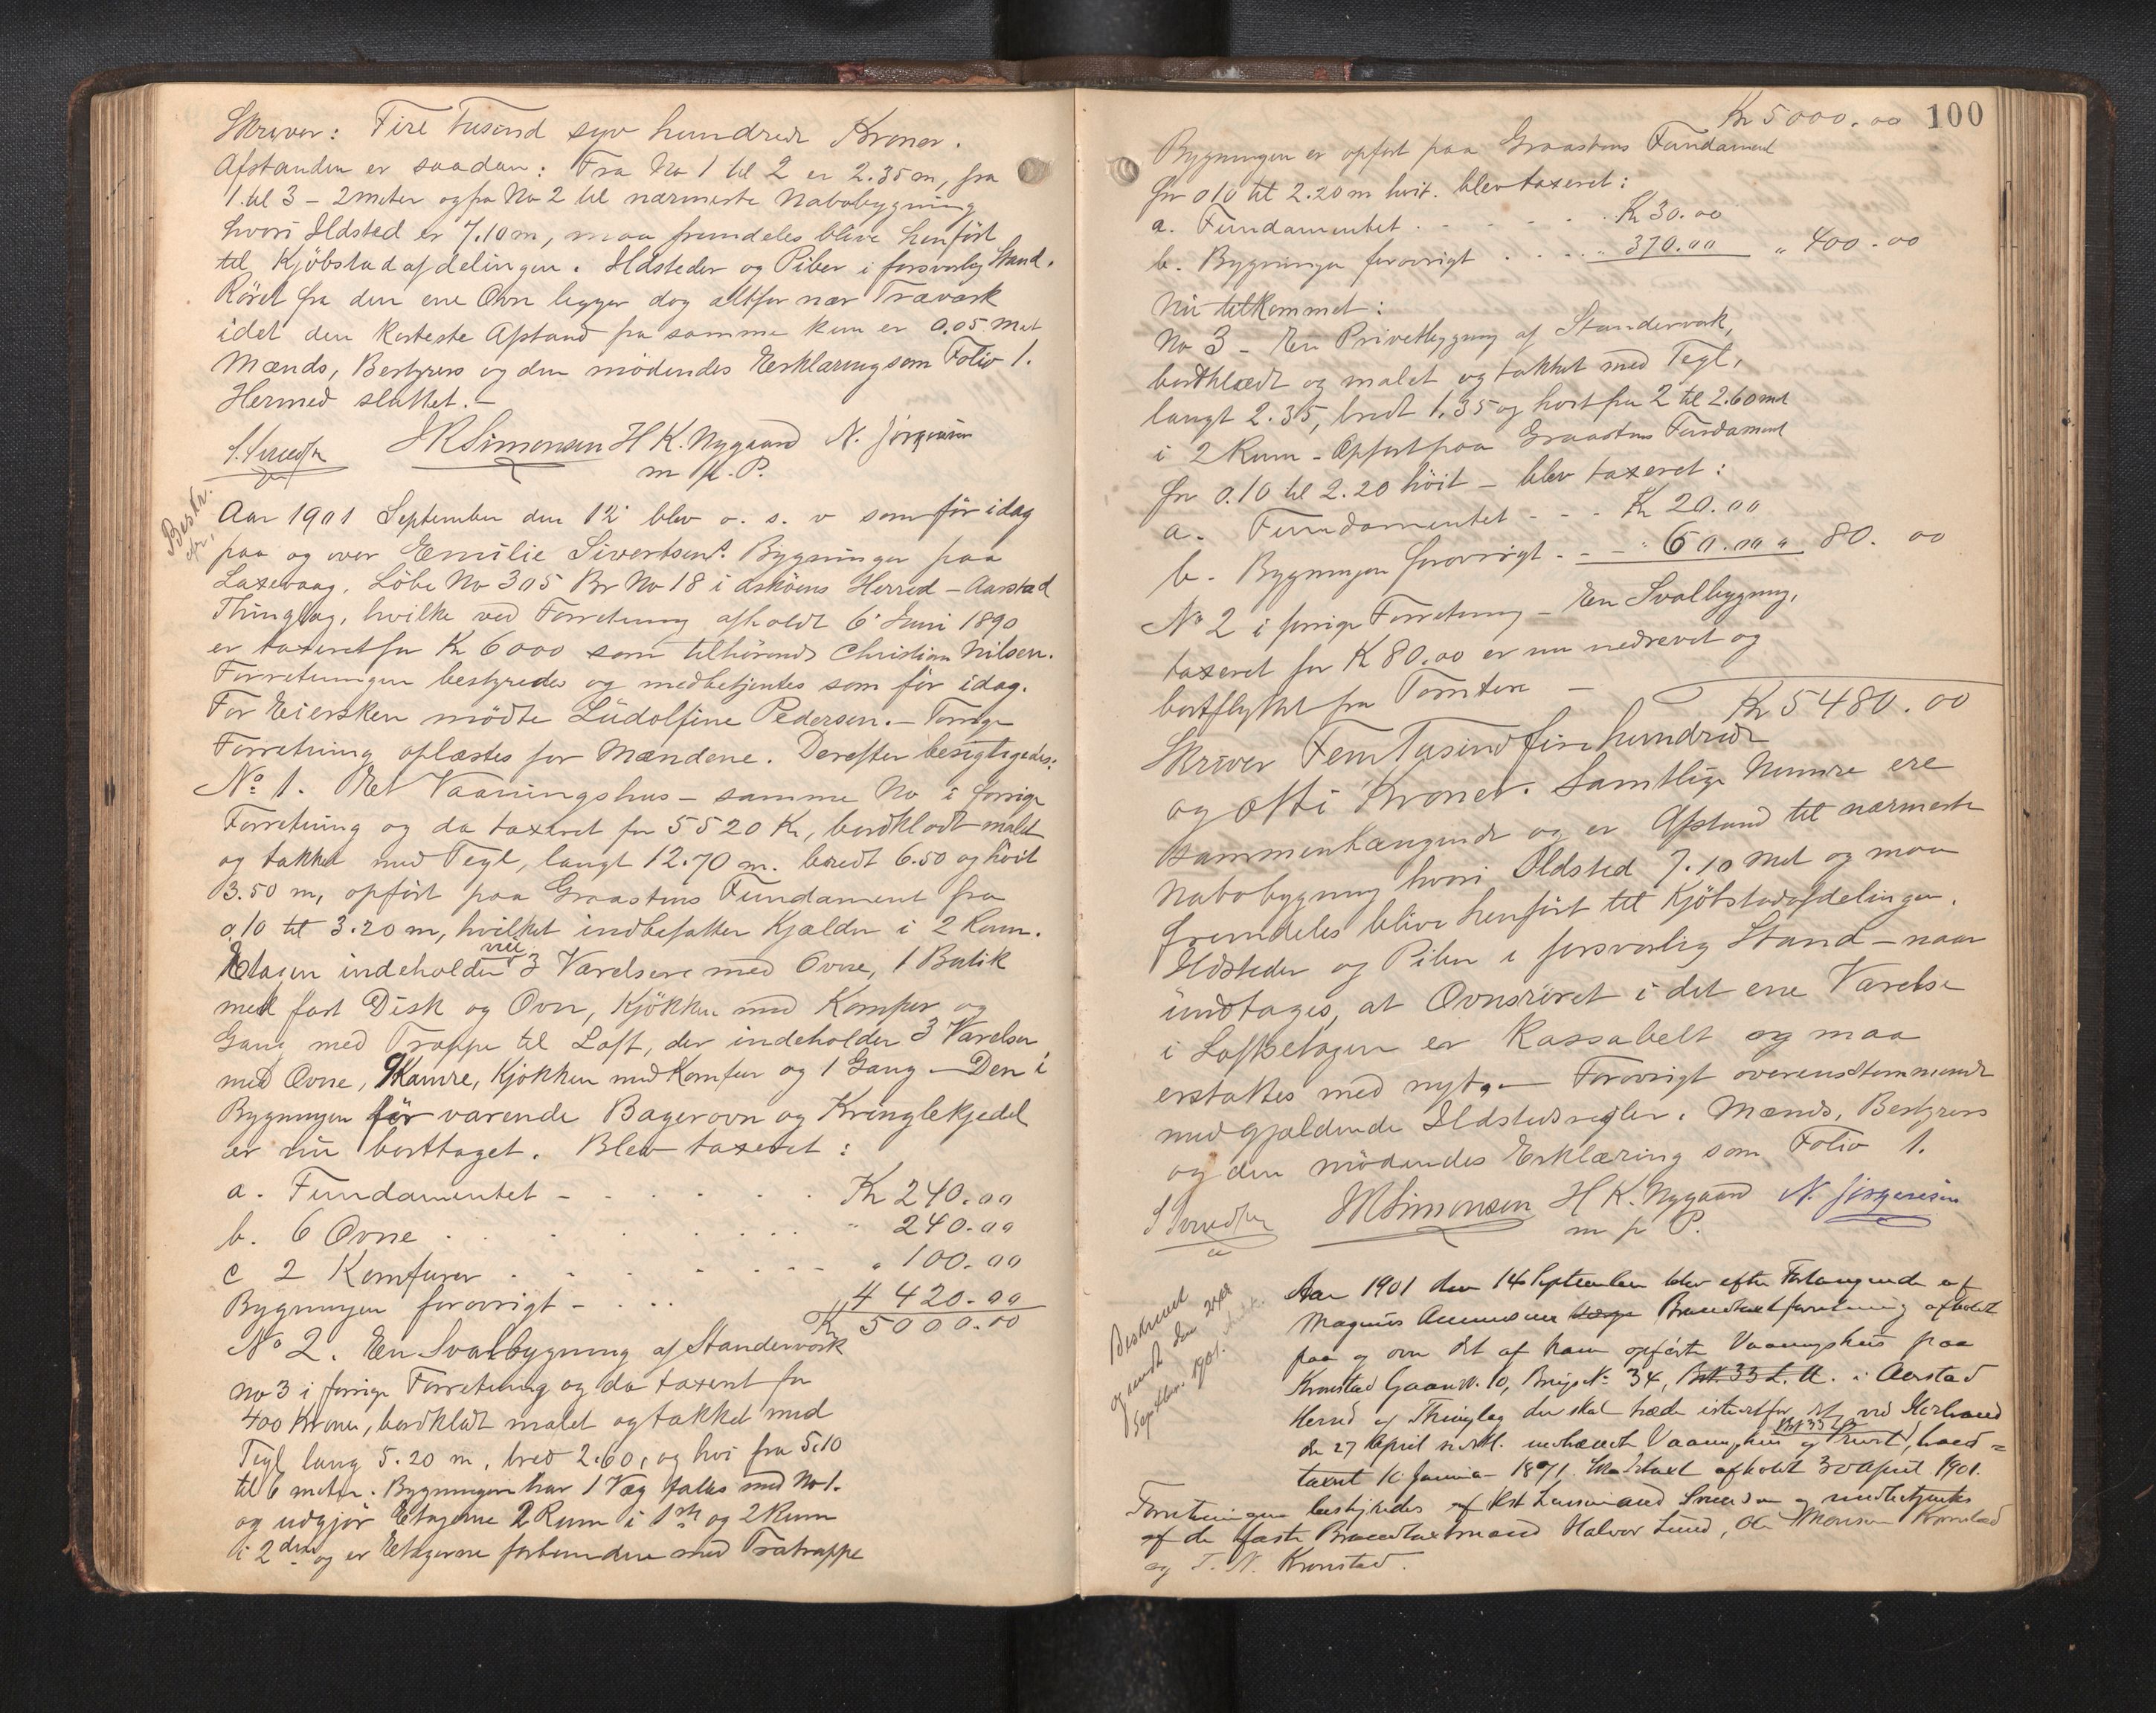 Skriver: Fire Tusind syv hundrede Kroner.
Afstanden er saadan: Fra No 1 til 2 er 2.35 m, fra
1 til 3 - 2 meter og fra No 2 til nærmeste Nabobygning
hvori Ildsted er 7.10 m, maa fremdeles blive henført
til Kjöbstadafdelingen. Ildsteder og Piber i forsvarlig Stand.
Röret fra den ene Ovn ligger dog altfor nær Træværk
idet den korteste Afstand fra samme kun er 0.05 met
Mænds, Bestyrers og den mödendes Erklæring som Folio 1.
Hermed sluttet. -
JR Simonsen H K. Nygaard N. Jörgensen
m p. P.
Bestr.
Aar 1901 September den 12' blev o. s. v som för idag
paa og over Emilie Sivertsens Bygninger paa
Laxevaag, Löbe No 305 Br No 18 i Askøens Herred - Aarstad
Thinglag, hvilke ved Forretning afholdt 6' Juni 1890
er taxeret for Kr 6000 som tilhörende Christian Nilsen.
Forretningen bestyredes og medbetjentes som för idag.
For Eiersken mödte Ludolfine Pedersen. - Forrige
Forretning oplæstes for Mændene. Derefter besigtigedes:
No 1. Et Vaaningshus - samme No i forrige
Forretning og da taxeret for 5520 Kr, bordklædt malet
og takket med Tegl, langt 12.70 m. bredt 6.50 og höit
3.50 m, opfört paa Graastens Fundament fra
0.10 til 3.20 m, hvilket indbefatter Kjælder i 2 Rum.
Etagen indeholder nu 3 Værelser med Ovne, 1 Butik
med fast Disk og Ovn, Kjökken med Komfur og
Gang med Trappe til Loft, der indeholder 3 Værelser
med Ovne, Kamre, Kjökken med Komfur og 1 Gang - Den i
Bygningen för værende Bagerovn og Kringlekjedel
er nu borttaget. Blev taxeret:
a. Fundamentet - . . . . Kr 240.00
b. 6 Ovne . . . . . " 240.00
c 2 Komfurer . . . - - " 100.00
Bygningen forovrigt - . . . 4420.00
Kr 5000.00
No 2. En Svalbygning af Standerværk
No 3 i forrige Forretning og da taxeret for
400 Kroner, bordklædt malet og takket med
Tegl, lang 5.20 m, bred 2.60, og höi fra 5.10
til 6 meter. Bygningen har 1 Væg fælles med No 1.
og udgjör Etagerne 2 Rum i 1ste og 2 Rum
i 2den og er Etagerne forbundne med Trætrappe
100
Kr 5000.00
Bygningen er opfört paa Graastens Fundament
fra 0.10 til 2.20 m höit. blev taxeret:
a. Fundamentet . - - - . Kr 30.00
b. Bygningen forovrigt . . . . " 370.00 " 400.00
Nu tilkommet:
No 3 - En Privetbygning af Standerværk,
bordklædt og malet og takket med Tegl,
langt 2.35, bredt 1.35 og höit fra 2 til 2.60 met
i 2 Rum - Opfört paa Graastens Fundament
fra 0.10 til 2.20 höit - blev taxeret:
a. Fundamentet - - - Kr 20.00
b. Bygningen forovrigt . - - " 60.00 " 80.00
No 2 i forrige Forretning - En Svalbygning,
taxeret for Kr 80.00 er nu nedrevet og
bortflyttet fra Tomten -
Kr 5480.00
Skriver Fem Tusind fire hundrede
og otti Kroner. Samtlige Numre ere
sammenhængende og er Afstand til nærmeste
Nabobygning hvori Ildsted 7.10 met og maa
fremdeles blive henfört til Kjöbstadafdelingen.
Ildsteder og Piber i forsvarlig Stand - naar
undtages, at Ovnsröret i det ene Værelse
i Loftsetagen er Kassabelt og maa
erstattes med nyt. - Forovrigt overensstemmende
med gjældende Ildstedsregler. Mænds, Bestyrers
og den mödendes Erklæring som Folio 1.
JR Simonsen H K. Nygaard N. Jörgensen
m p P.
Beskrevet
og sendt den 24de
Septbr. 1901.
Aar 1901 den 14 September blev efter Forlangende af
Magnus Brandtaxtforretning afholdt
paa og over det af ham opförte Vaaningshus paa
Kronstad Gaards N. 10, Brugs No 34, i Aarstad
Herred og Thinglag der skal træde istedetfor det ved Ildebrand
den 27 April nedbrændte Vaaningshus Br 33
taxeret 10 Januar 1891. Skadetaxt afholdt 30 April 1901.
Forretningen bestyredes af Lensmand og medbetjentes
af de faste Brandtaxtmænd Halvor Lund, Ole Monsen Kronstad
og T. N. Kronstad.